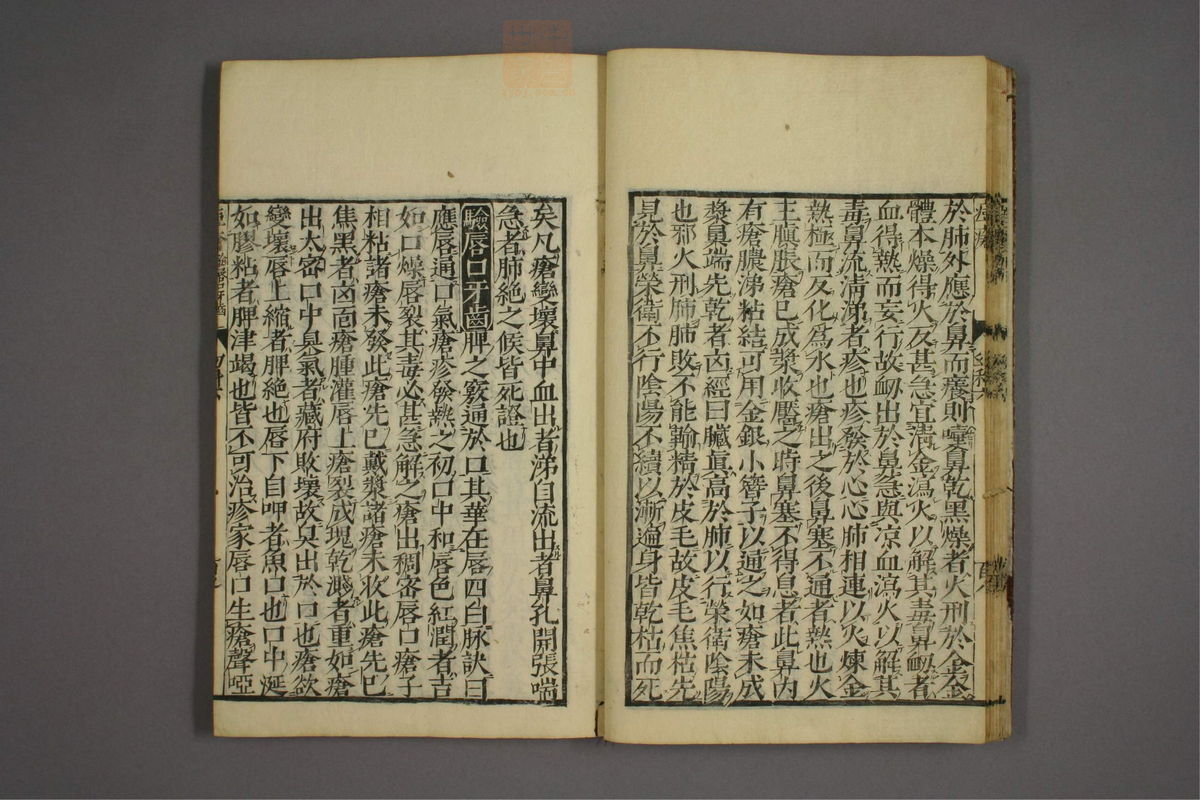 於肺外應於鼻而癢則嚏鼻乾黑燥者火刑於金金
體本燥得火反甚急宜清金瀉火以解其毒鼻衂者
血得熱而妄行故衂出於鼻急與凉血瀉火以解其
毒鼻流清涕者疹也疹發於心心肺相連以火煉金
熱極而反化爲水也瘡出之後鼻塞不通者熱也火
主䐜脹瘡已成漿收壓之時鼻塞不得息者此鼻内
有瘡膿涕粘結可用金銀小簪子以通之如瘡未成
漿鼻端先乾者凶經曰臟眞高於肺以行榮衛陰陽
也邪火刑肺肺敗不能輸精於皮毛故皮毛焦枯先
見於鼻榮衛不行陰陽不續以漸遍身皆乾枯而死
矣凡瘡變壞鼻中血出者涕自流出者鼻孔開張喘
急者肺絶之候皆死證也
驗唇口牙齒 脾之竅通於口其華在唇四白脉訣曰
應唇通口氣瘡疹發熱之初口中和唇色紅潤者吉
如口燥唇裂其毒必甚急解之瘡出稠密唇口瘡子
相粘諸瘡未發此瘡先已戴漿諸瘡未收此瘡先已
焦黑者凶面瘡腫灌唇上瘡裂成塊乾濺者重如瘡
出太密口中臭氣者藏府敗壞故臭出於口也瘡欲
變壞唇上縮者脾絶也唇下自呷者魚口也口中涎
如膠粘者脾津竭也皆不可治疹家唇口生瘡聲啞